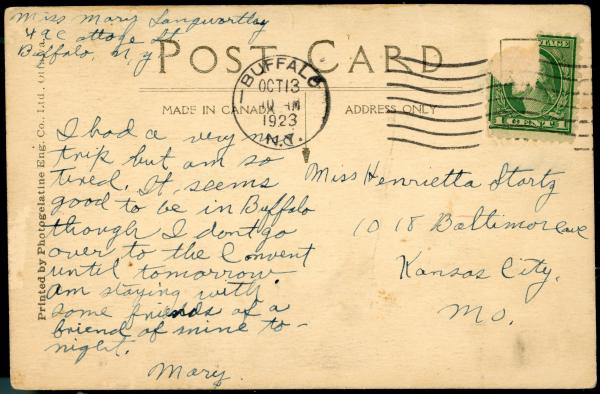 Miss Mary Langworthy
49 Cottage St.
Buffalo, N. Y
POST CARD
BUFFALO,
OCT 13
10 AM
1923
N.Y.
MADE IN CANADA
ADDRESS ONLY
1 CENT
Printed by Photogelatine Eng. Co., Ltd.,
I had a very nice
trip but am so
tired. It seems
good to be in Buffalo
though I dont go
over to the Convent
until tomorrow
am staying with
some friends of a
friend of mine to-
night.
Mary.
Miss Henrietta Startz
1018 Baltimore Ave
Kansas City.
Mo.